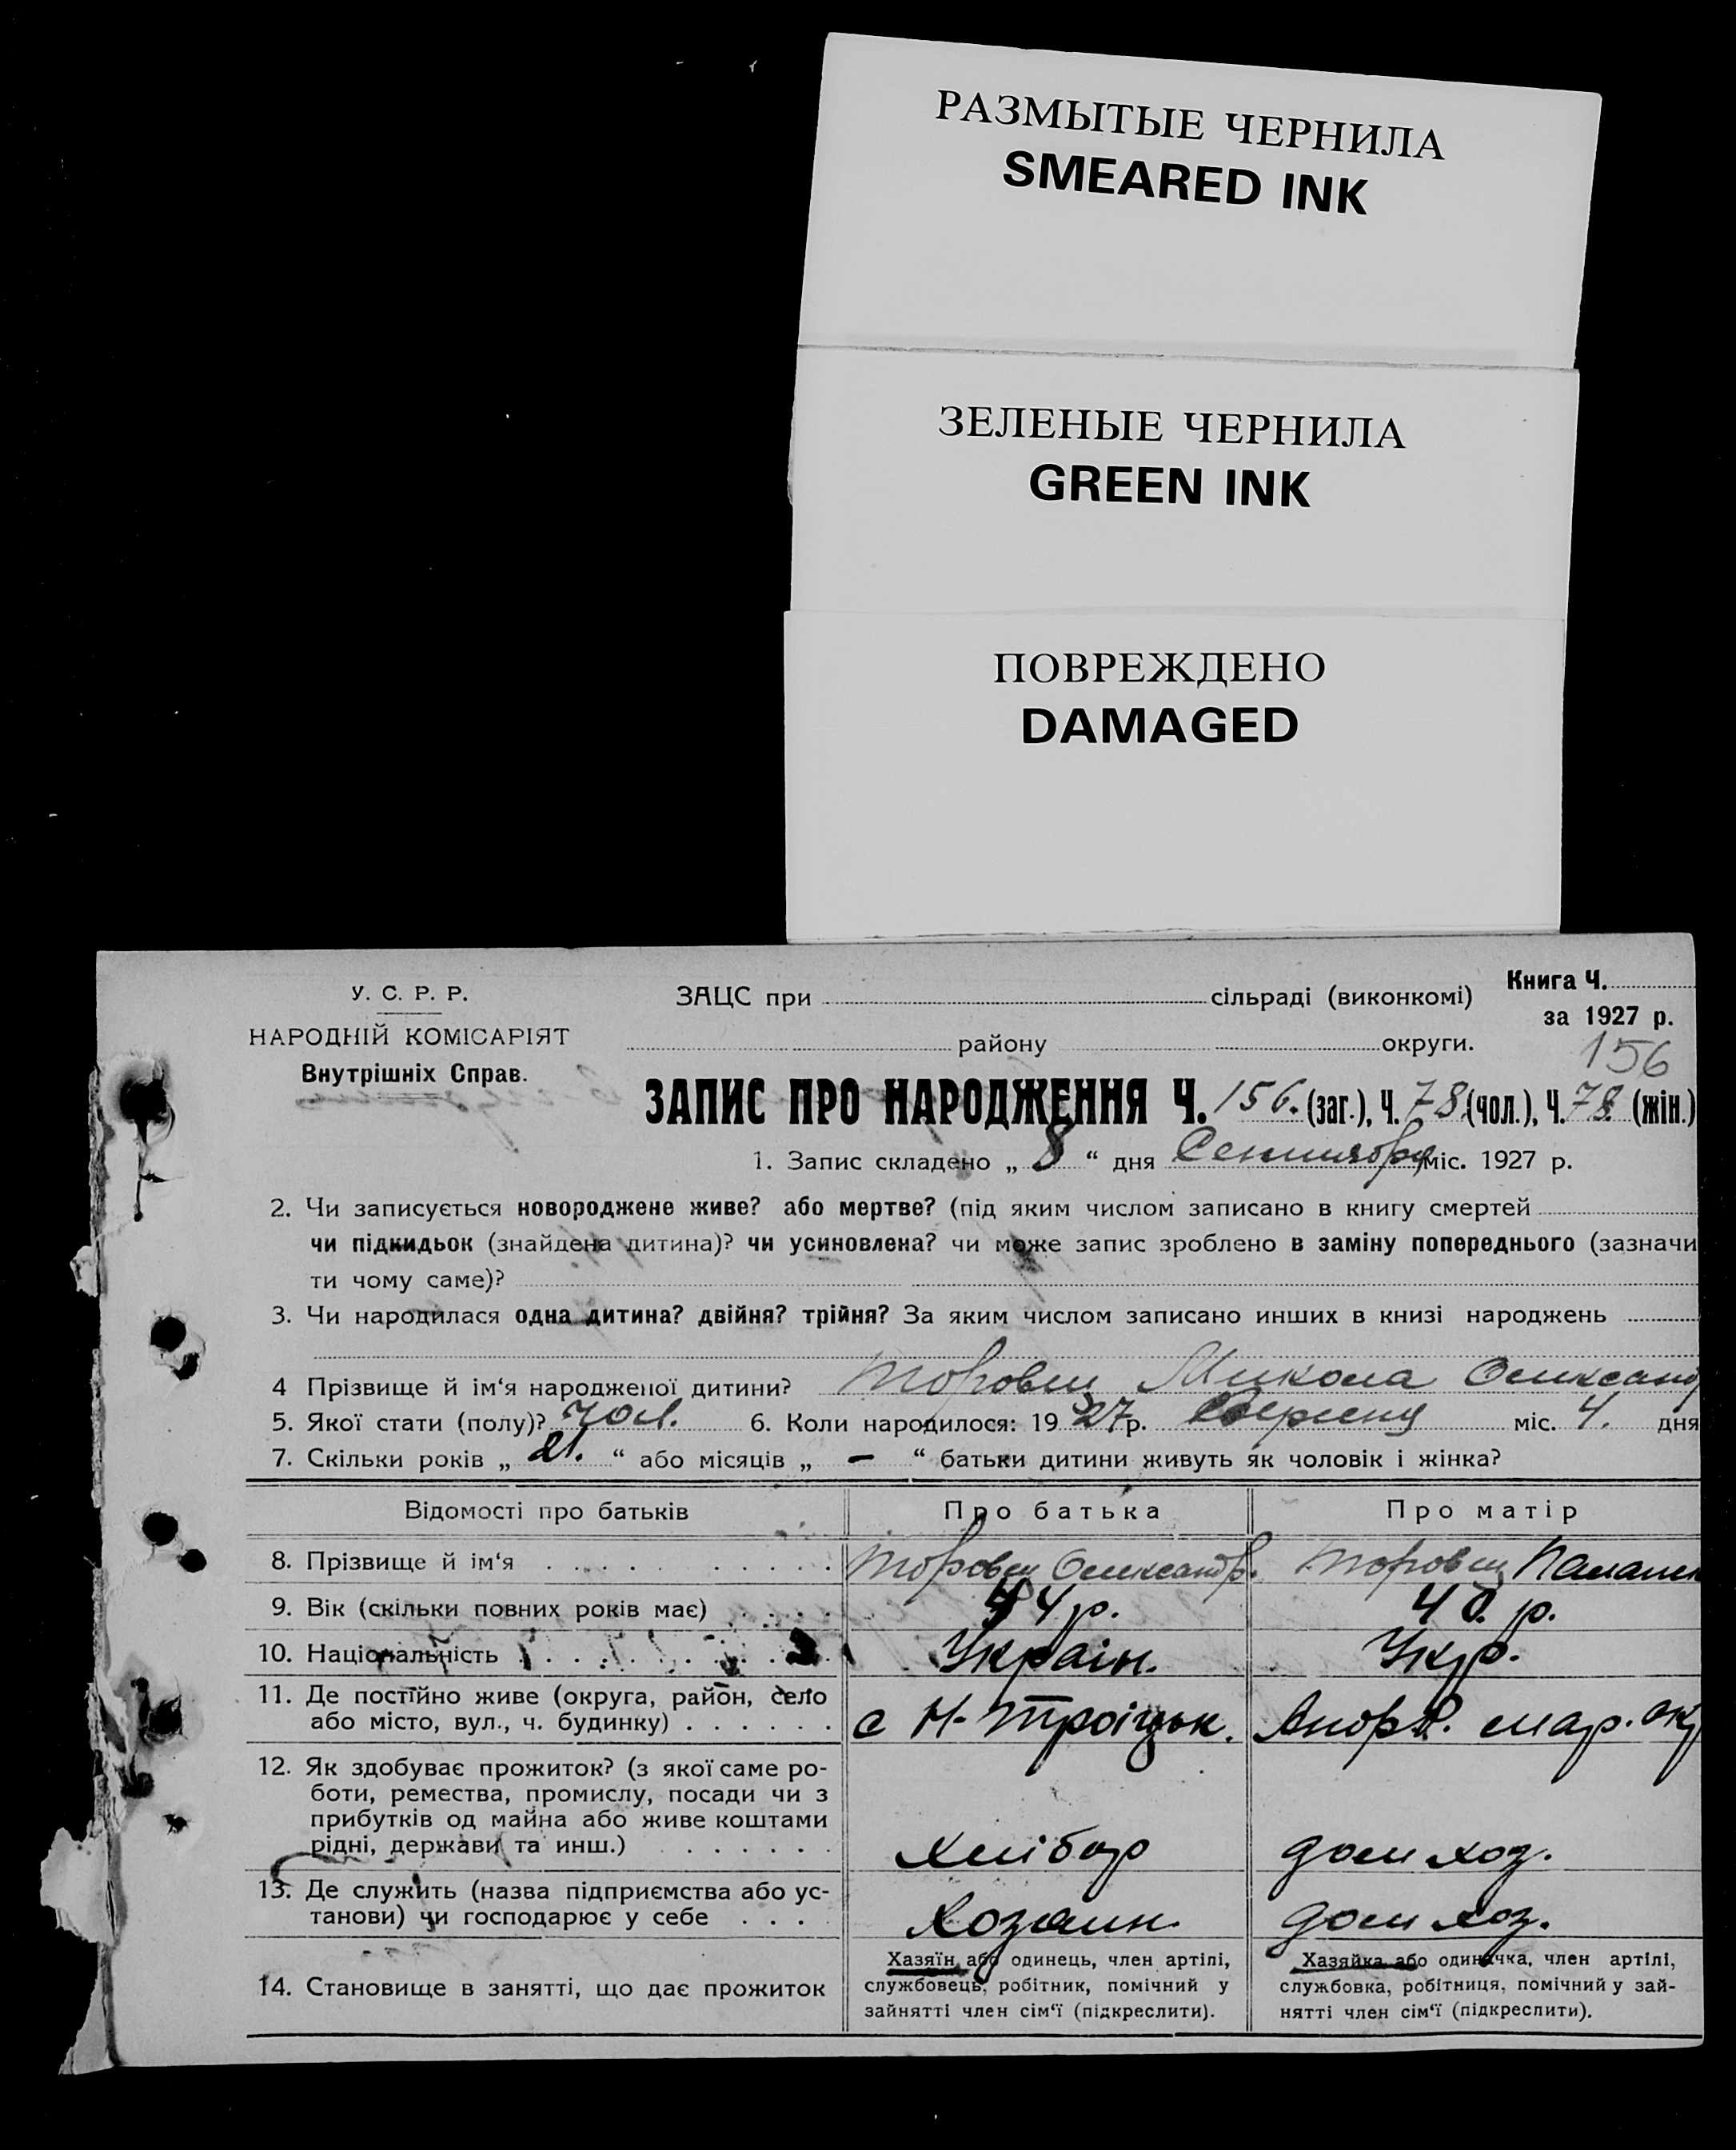 РАЗМЫТЫЕ ЧЕРНИЛА
SMEARED INK
ЗЕЛЕНЫЕ ЧЕРНИЛА
GREEN INK
ПОВРЕЖДЕНО
DAMAGED
У. С. Р. Р.
НАРОДНІЙ КОМІСАРІЯТ
Внутрішніх Справ.
ЗАЦС при сільраді (виконкомі)
Книга Ч.
за 1927 р.
району округи.
156
ЗАПИС ПРО НАРОДЖЕННЯ Ч. 156. (заг.), Ч. 78 (чол.), Ч. 78. (жін.)
1. Запис складено „ 8 “ дня Сентября міс. 1927 р.
2. Чи записується новороджене живе? або мертве? (під яким числом записано в книгу смертей
чи підкидьок (знайдена дитина)? чи усиновлена? чи може запис зроблено в заміну попереднього (зазначи
ти чому саме)?
3. Чи народилася одна дитина? двійня? трійня? За яким числом записано инших в книзі народжень
4 Прізвище й ім‘я народженої дитини? Микола Олександ
5. Якої стати (полу)? чол. 6. Коли народилося: 19 27 р. міс. 4. дня
7. Скільки років „ 21. “ або місяців „ — “ батьки дитини живуть як чоловік і жінка?
Відомості про батьків
Про батька
Про матір
8. Прізвище й ім‘я Олександр.
9. Вік (скільки повних років має) 44 р. 40. р.
10. Національність Україн. Укр.
11. Де постійно живе (округа, район, село
або місто, вул., ч. будинку) с Н-Троіцьк. Андр. Р. мар. окр
12. Як здобуває прожиток? (з якої саме ро-
боти, ремества, промислу, посади чи з
прибутків од майна або живе коштами
рідні, держави та инш.) хлібор дом хоз.
13. Де служить (назва підприємства або ус-
танови) чи господарює у себе Хозяин. дом хоз.
14. Становище в занятті, що дає прожиток
Хазяїн або одинець, член артілі,
службовець, робітник, помічний у
зайнятті член сім‘ї (підкреслити).
Хазяйка або одиначка, член артілі,
службовка, робітниця, помічний у зай-
нятті член сім‘ї (підкреслити).